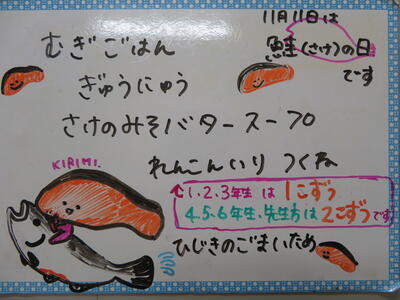 11月11日は
鮭(さけ)の日
です
むぎごはん
ぎゅうにゅう
さけのみそバタースープ
KIRIMI.
れんこんいり つくね
1、2、3年生 は 1こずつ
4、5、6年生、先生方は 2こずつです
ひじきのごまいため